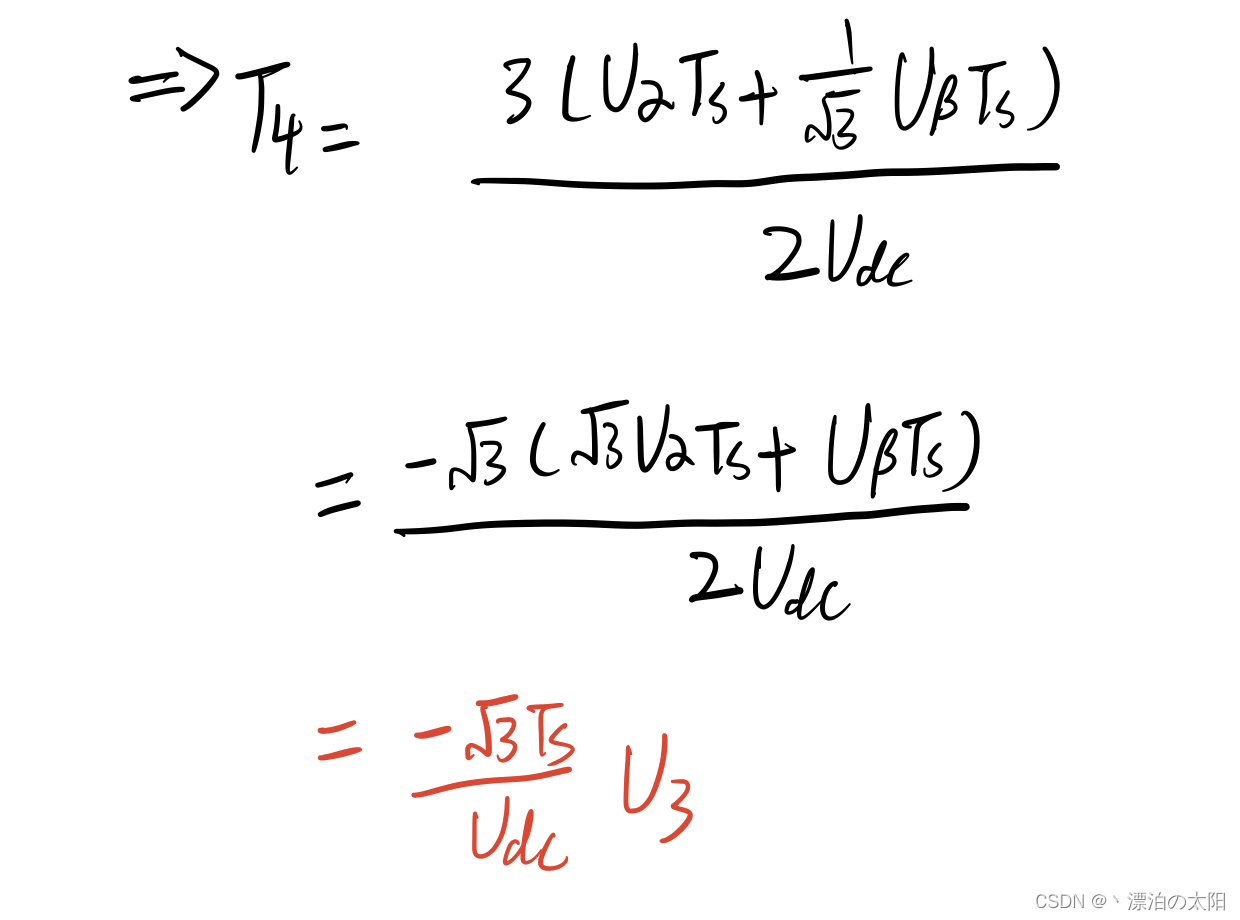 ⇒ T₄ = 3(U₂Tₛ + 1/√3 UᵦTₛ) / 2U_dc
= -√3(√3U₂Tₛ + UᵦTₛ) / 2U_dc
= -√3Tₛ / U_dc U₃
CSDN @丶漂泊の太阳